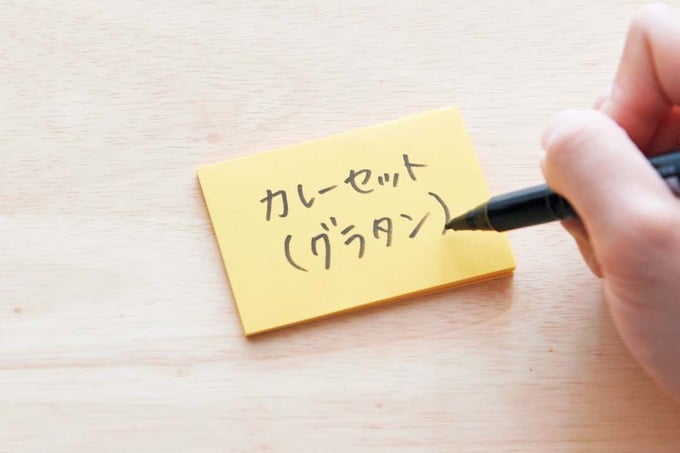 カレーセット
(グラタン)